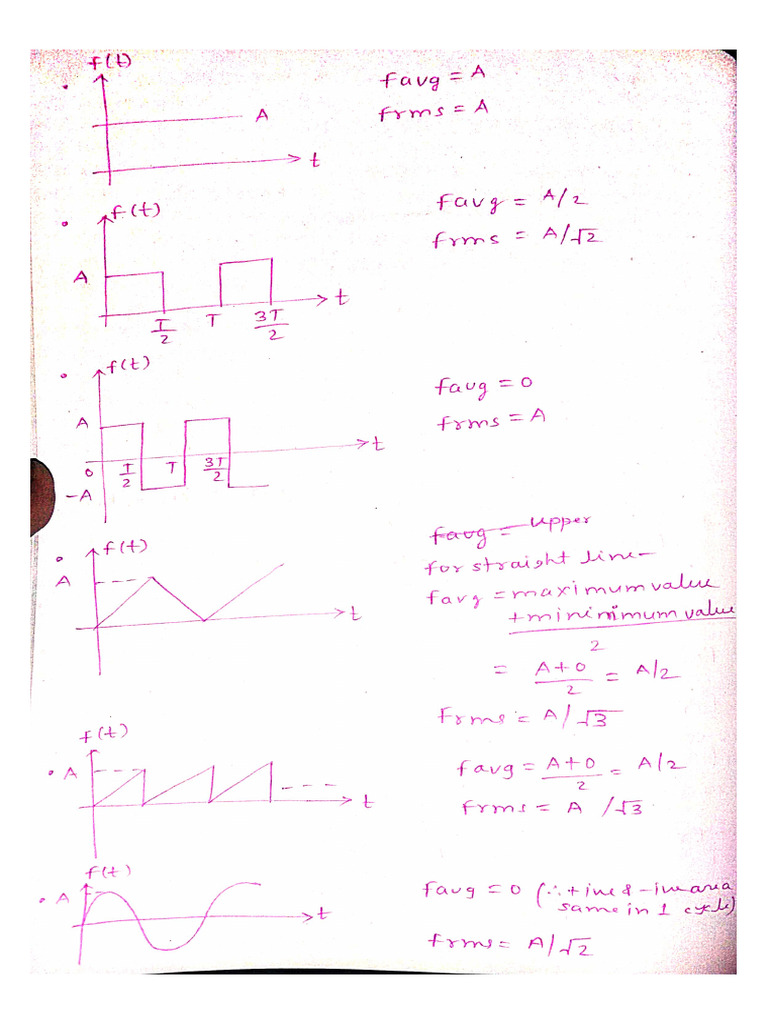 f(t)
A
t
favg = A
frms = A
f(t)
A
T/2 T 3T/2
t
favg = A/2
frms = A/√2
f(t)
A
0 T/2 T 3T/2
-A
t
favg = 0
frms = A
f(t)
A
t
favg = upper
for straight line-
favg = maximum value
+ minimum value
2
= A+0/2 = A/2
Frms = A/√3
f(t)
A
t
favg = A+0/2 = A/2
frms = A/√3
f(t)
A
t
favg = 0 (∵ +ive & -ive area
same in 1 cycle)
frms = A/√2